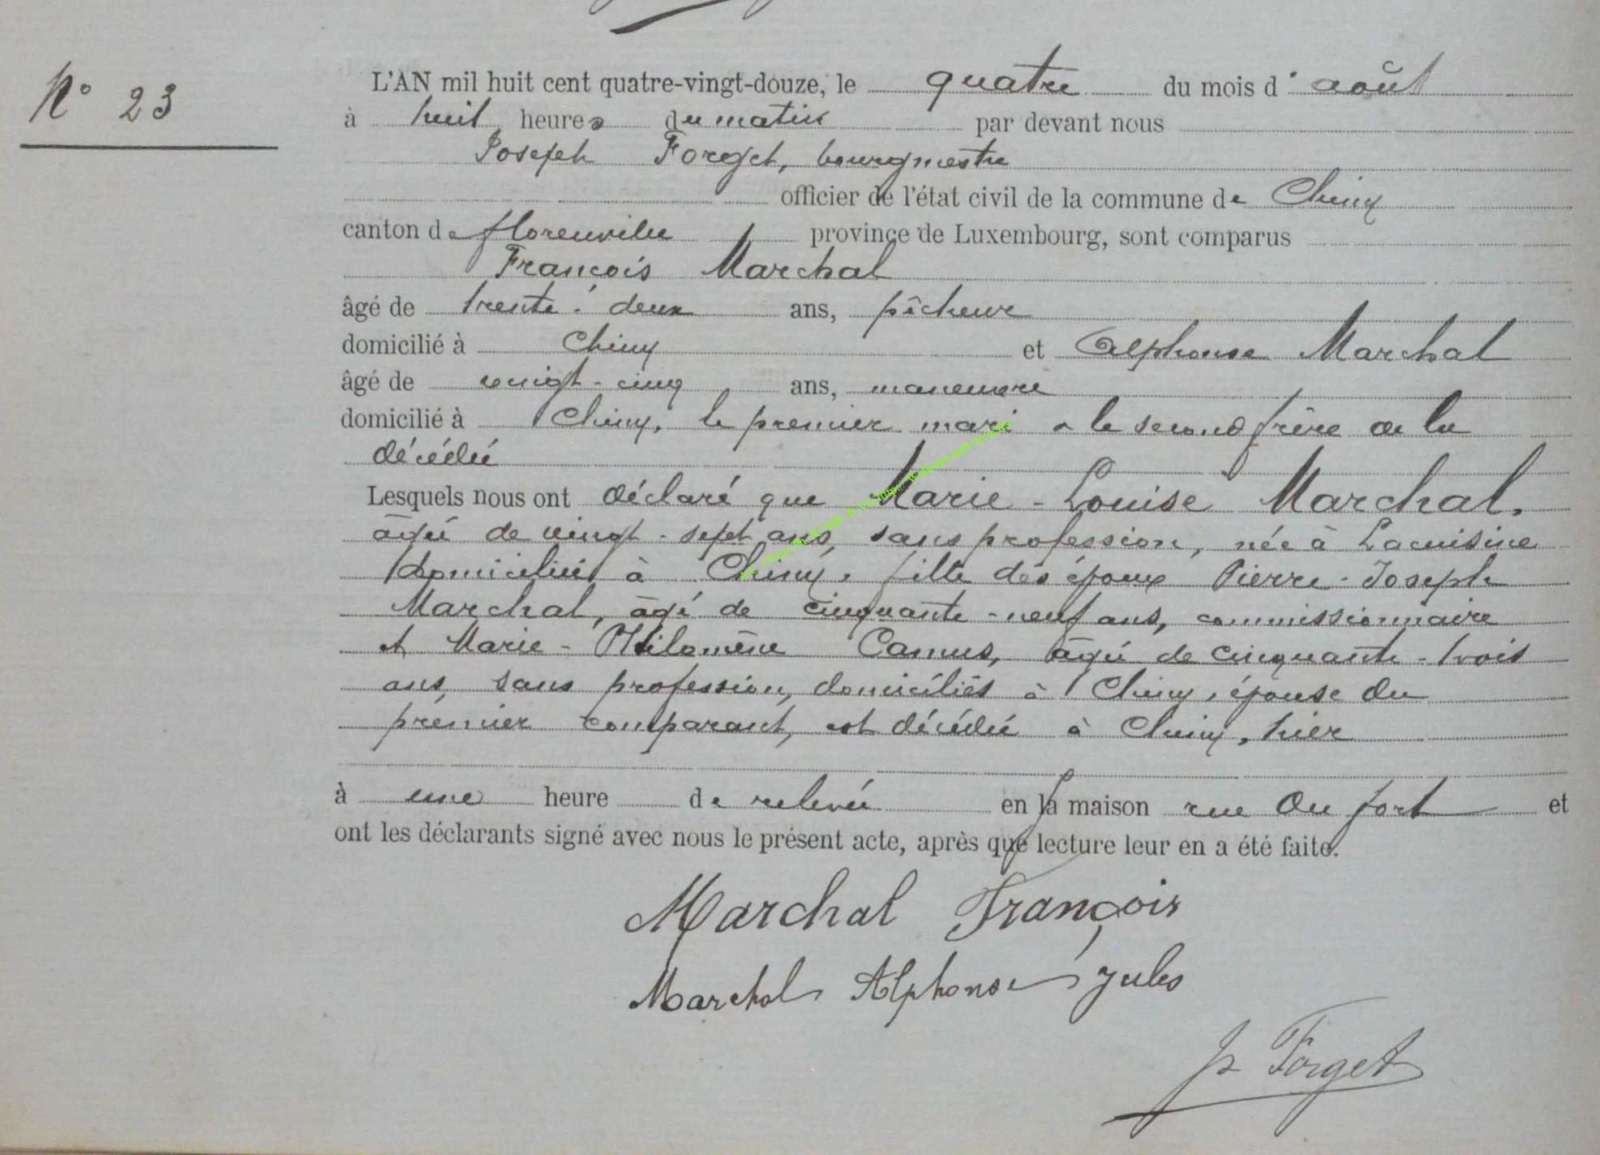 N° 23
L'AN mil huit cent quatre-vingt-douze, le quatre du mois d'août
à huit heures du matin par devant nous
Joseph Forget, bourgmestre
officier de l'état civil de la commune de Chiny
canton de florenville province de Luxembourg, sont comparus
François Marchal
âgé de trente-deux ans, pêcheur
domicilié à Chiny et Alphonse Marchal
âgé de vingt-cinq ans, manœuvre
domicilié à Chiny, le premier mari & le second frère de la
décédée
Lesquels nous ont déclaré que Marie-Louise Marchal,
âgée de vingt-sept ans, sans profession, née à Lacuisine
domiciliée à Chiny, fille des époux Pierre-Joseph
Marchal, âgé de cinquante-neuf ans, commissionnaire
et Marie-Philomène Camus, âgée de cinquante-trois
ans, sans profession, domiciliés à Chiny, épouse du
premier comparant, est décédée à Chiny, hier
à une heure de relevée en la maison rue du fort et
ont les déclarants signé avec nous le présent acte, après que lecture leur en a été faite.
Marchal François
Marchal Alphonse Jules
Js Forget